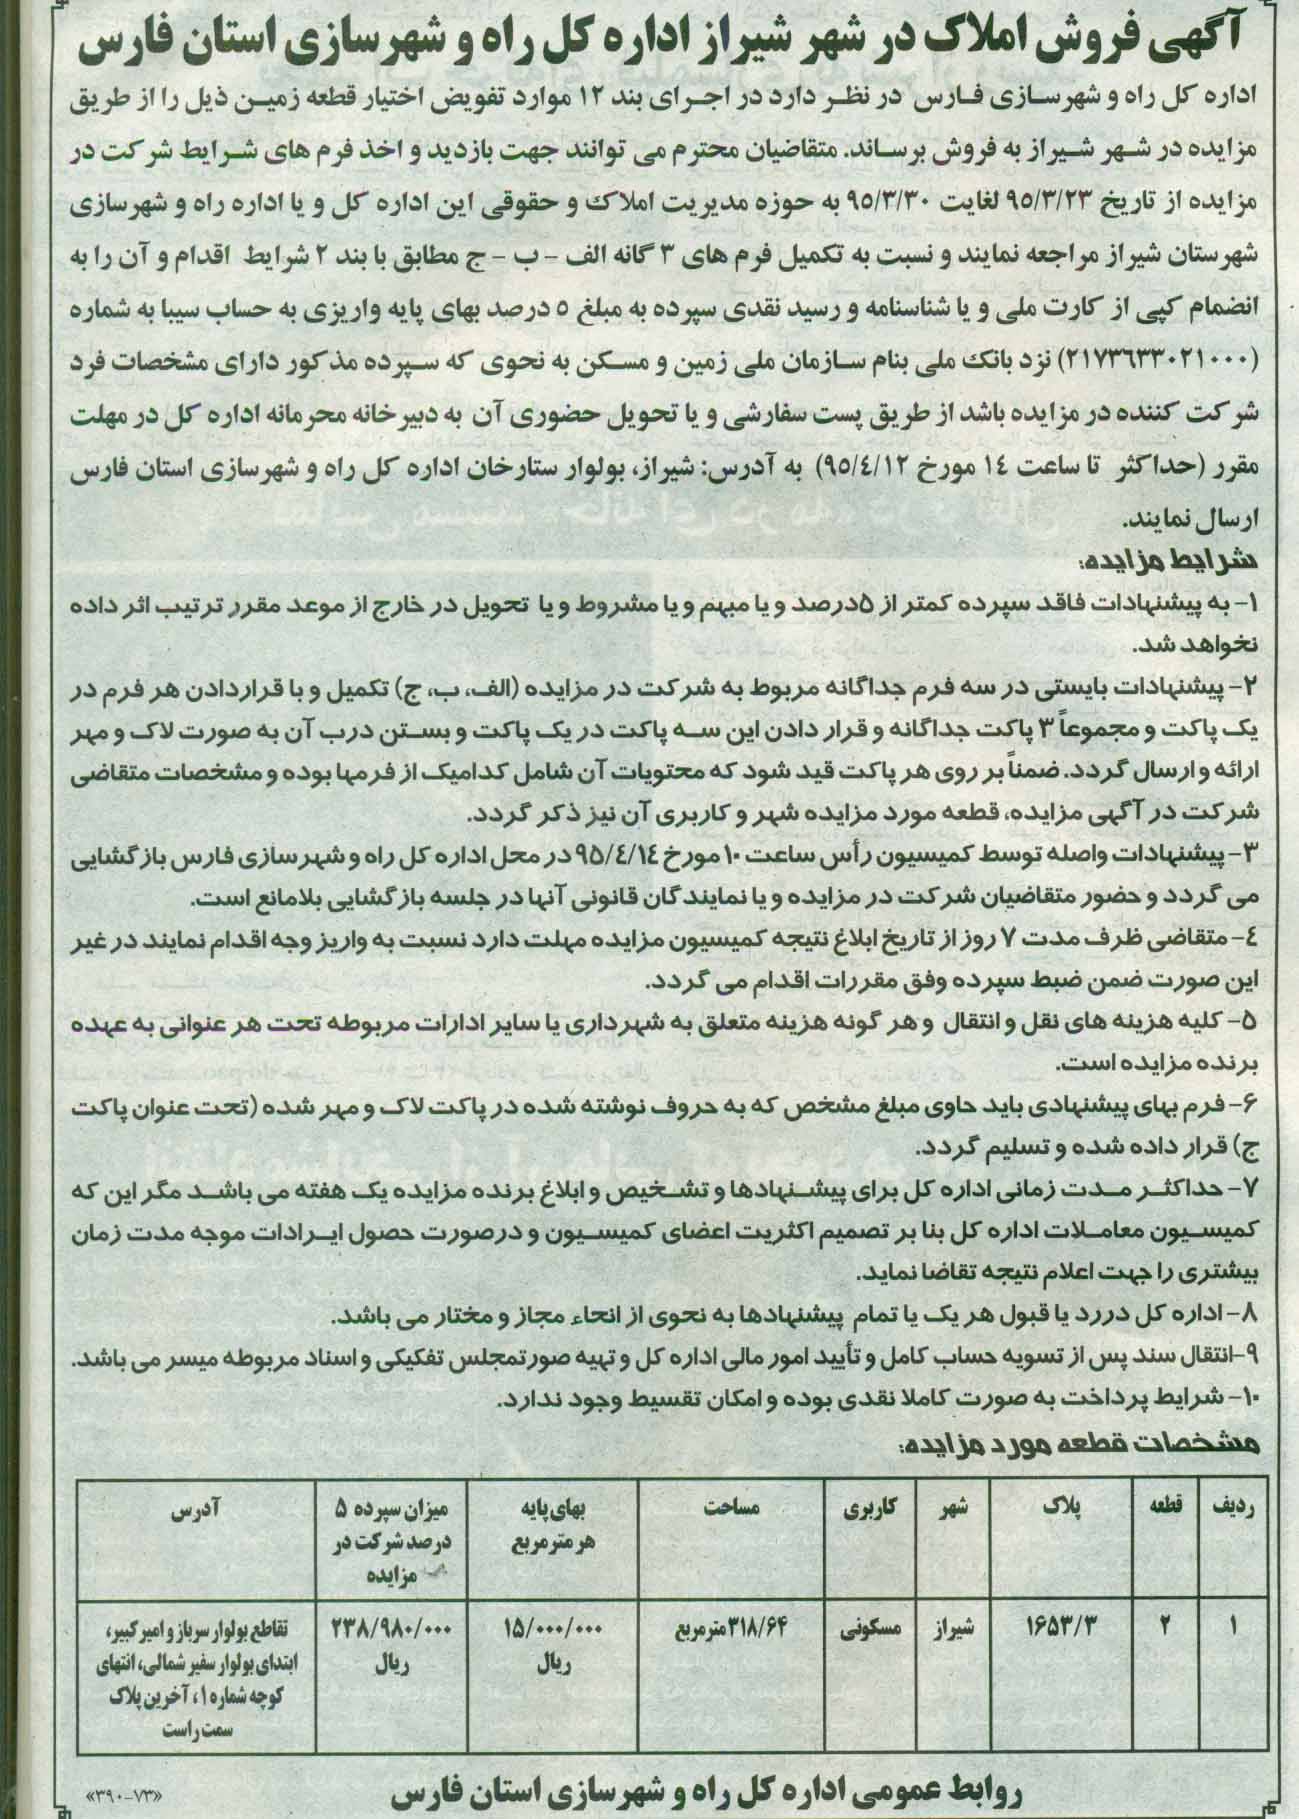 آگهی فروش املاک در شهر شیراز اداره کل راه و شهرسازی استان فارس
اداره کل راه و شهرسازی فارس در نظر دارد در اجرای بند ۱۲ موارد تفویض اختیار قطعه زمین ذیل را از طریق
مزایده در شهر شیراز به فروش برساند. متقاضیان محترم می توانند جهت بازدید و اخذ فرم های شرایط شرکت در
مزایده از تاریخ ۹۵/۳/۲۳ لغایت ۹۵/۳/۳۰ به حوزه مدیریت املاک و حقوقی این اداره کل و یا اداره راه و شهرسازی
شهرستان شیراز مراجعه نمایند و نسبت به تکمیل فرم های ۳ گانه الف - ب - ج مطابق با بند ۲ شرایط اقدام و آن را به
انضمام کپی از کارت ملی و یا شناسنامه و رسید نقدی سپرده به مبلغ ۵ درصد بهای پایه واریزی به حساب سیبا به شماره
(۲۱۷۳۶۳۳۰۲۱۰۰۰) نزد بانک ملی بنام سازمان ملی زمین و مسکن به نحوی که سپرده مذکور دارای مشخصات فرد
شرکت کننده در مزایده باشد از طریق پست سفارشی و یا تحویل حضوری آن به دبیرخانه محرمانه اداره کل در مهلت
مقرر (حداکثر تا ساعت ۱۴ مورخ ۹۵/۴/۱۲) به آدرس: شیراز، بولوار ستارخان اداره کل راه و شهرسازی استان فارس
ارسال نمایند.
شرایط مزایده:
۱- به پیشنهادات فاقد سپرده کمتر از ۵درصد و یا مبهم و یا مشروط و یا تحویل در خارج از موعد مقرر ترتیب اثر داده
نخواهد شد.
۲- پیشنهادات بایستی در سه فرم جداگانه مربوط به شرکت در مزایده (الف، ب، ج) تکمیل و با قراردادن هر فرم در
یک پاکت و مجموعاً ۳ پاکت جداگانه و قرار دادن این سه پاکت در یک پاکت و بستن درب آن به صورت لاک و مهر
ارائه و ارسال گردد. ضمناً بر روی هر پاکت قید شود که محتویات آن شامل کدامیک از فرمها بوده و مشخصات متقاضی
شرکت در آگهی مزایده، قطعه مورد مزایده شهر و کاربری آن نیز ذکر گردد.
۳- پیشنهادات واصله توسط کمیسیون رأس ساعت ۱۰ مورخ ۹۵/۴/۱۴ در محل اداره کل راه و شهرسازی فارس بازگشایی
می گردد و حضور متقاضیان شرکت در مزایده و یا نمایندگان قانونی آنها در جلسه بازگشایی بلامانع است.
۴- متقاضی ظرف مدت ۷ روز از تاریخ ابلاغ نتیجه کمیسیون مزایده مهلت دارد نسبت به واریز وجه اقدام نمایند در غیر
این صورت ضمن ضبط سپرده وفق مقررات اقدام می گردد.
۵- کلیه هزینه های نقل و انتقال و هر گونه هزینه متعلق به شهرداری یا سایر ادارات مربوطه تحت هر عنوانی به عهده
برنده مزایده است.
۶- فرم بهای پیشنهادی باید حاوی مبلغ مشخص که به حروف نوشته شده در پاکت لاک و مهر شده (تحت عنوان پاکت
ج) قرار داده شده و تسلیم گردد.
۷- حداکثر مدت زمانی اداره کل برای پیشنهادها و تشخیص و ابلاغ برنده مزایده یک هفته می باشد مگر این که
کمیسیون معاملات اداره کل بنا بر تصمیم اکثریت اعضای کمیسیون و درصورت حصول ایرادات موجه مدت زمان
بیشتری را جهت اعلام نتیجه تقاضا نماید.
۸- اداره کل دررد یا قبول هر یک یا تمام پیشنهادها به نحوی از انحاء مجاز و مختار می باشد.
۹-انتقال سند پس از تسویه حساب کامل و تأیید امور مالی اداره کل و تهیه صورتمجلس تفکیکی و اسناد مربوطه میسر می باشد.
۱۰- شرایط پرداخت به صورت کاملا نقدی بوده و امکان تقسیط وجود ندارد.
مشخصات قطعه مورد مزایده:
ردیف قطعه پلاک شهر کاربری مساحت بهای پایه میزان سپرده ۵ آدرس
هر مترمربع درصد شرکت در
مزایده
۱ ۲ ۱۶۵۳/۳ شیراز مسکونی ۳۱۸/۶۴مترمربع ۱۵/۰۰۰/۰۰۰ ۲۳۸/۹۸۰/۰۰۰ تقاطع بولوار سرباز و امیرکبیر،
ریال ریال ابتدای بولوار سفیر شمالی، انتهای
کوچه شماره ۱، آخرین پلاک
سمت راست
روابط عمومی اداره کل راه و شهرسازی استان فارس
«۳۹۰-۷۳»